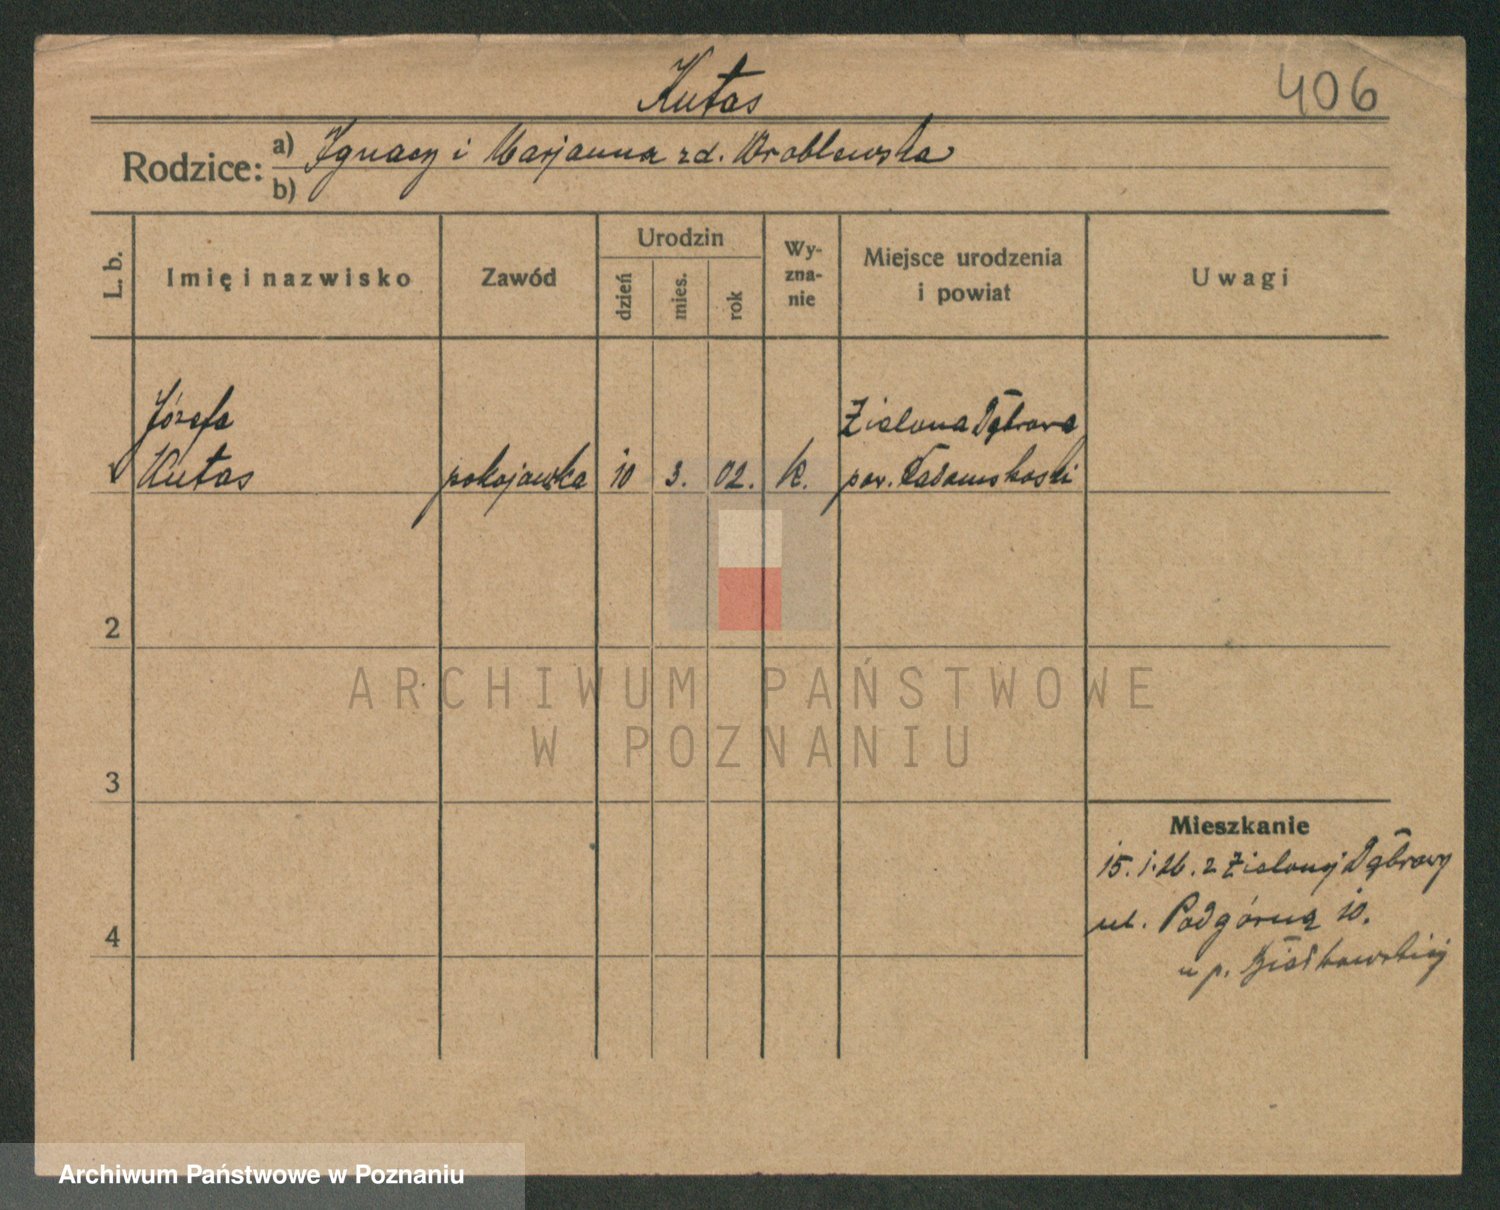 Kutas
406
Rodzice: a) Ignacy i Marjanna zd. Wroblewska
b)
L. b.
Imię i nazwisko
Zawód
Urodzin
dzień
mies.
rok
Wy-
zna-
nie
Miejsce urodzenia
i powiat
Uwagi
Józefa
Kutas
pokojawka
10
3.
02.
K.
Zielona Dąbrowa
pow. Radomskoski
2
3
4
Mieszkanie
15. 1. 26. z Zielonej Dąbrowy
ul. Podgórna 10.
u p. Ziółkowskiej
ARCHIWUM PAŃSTWOWE
W POZNANIU
Archiwum Państwowe w Poznaniu